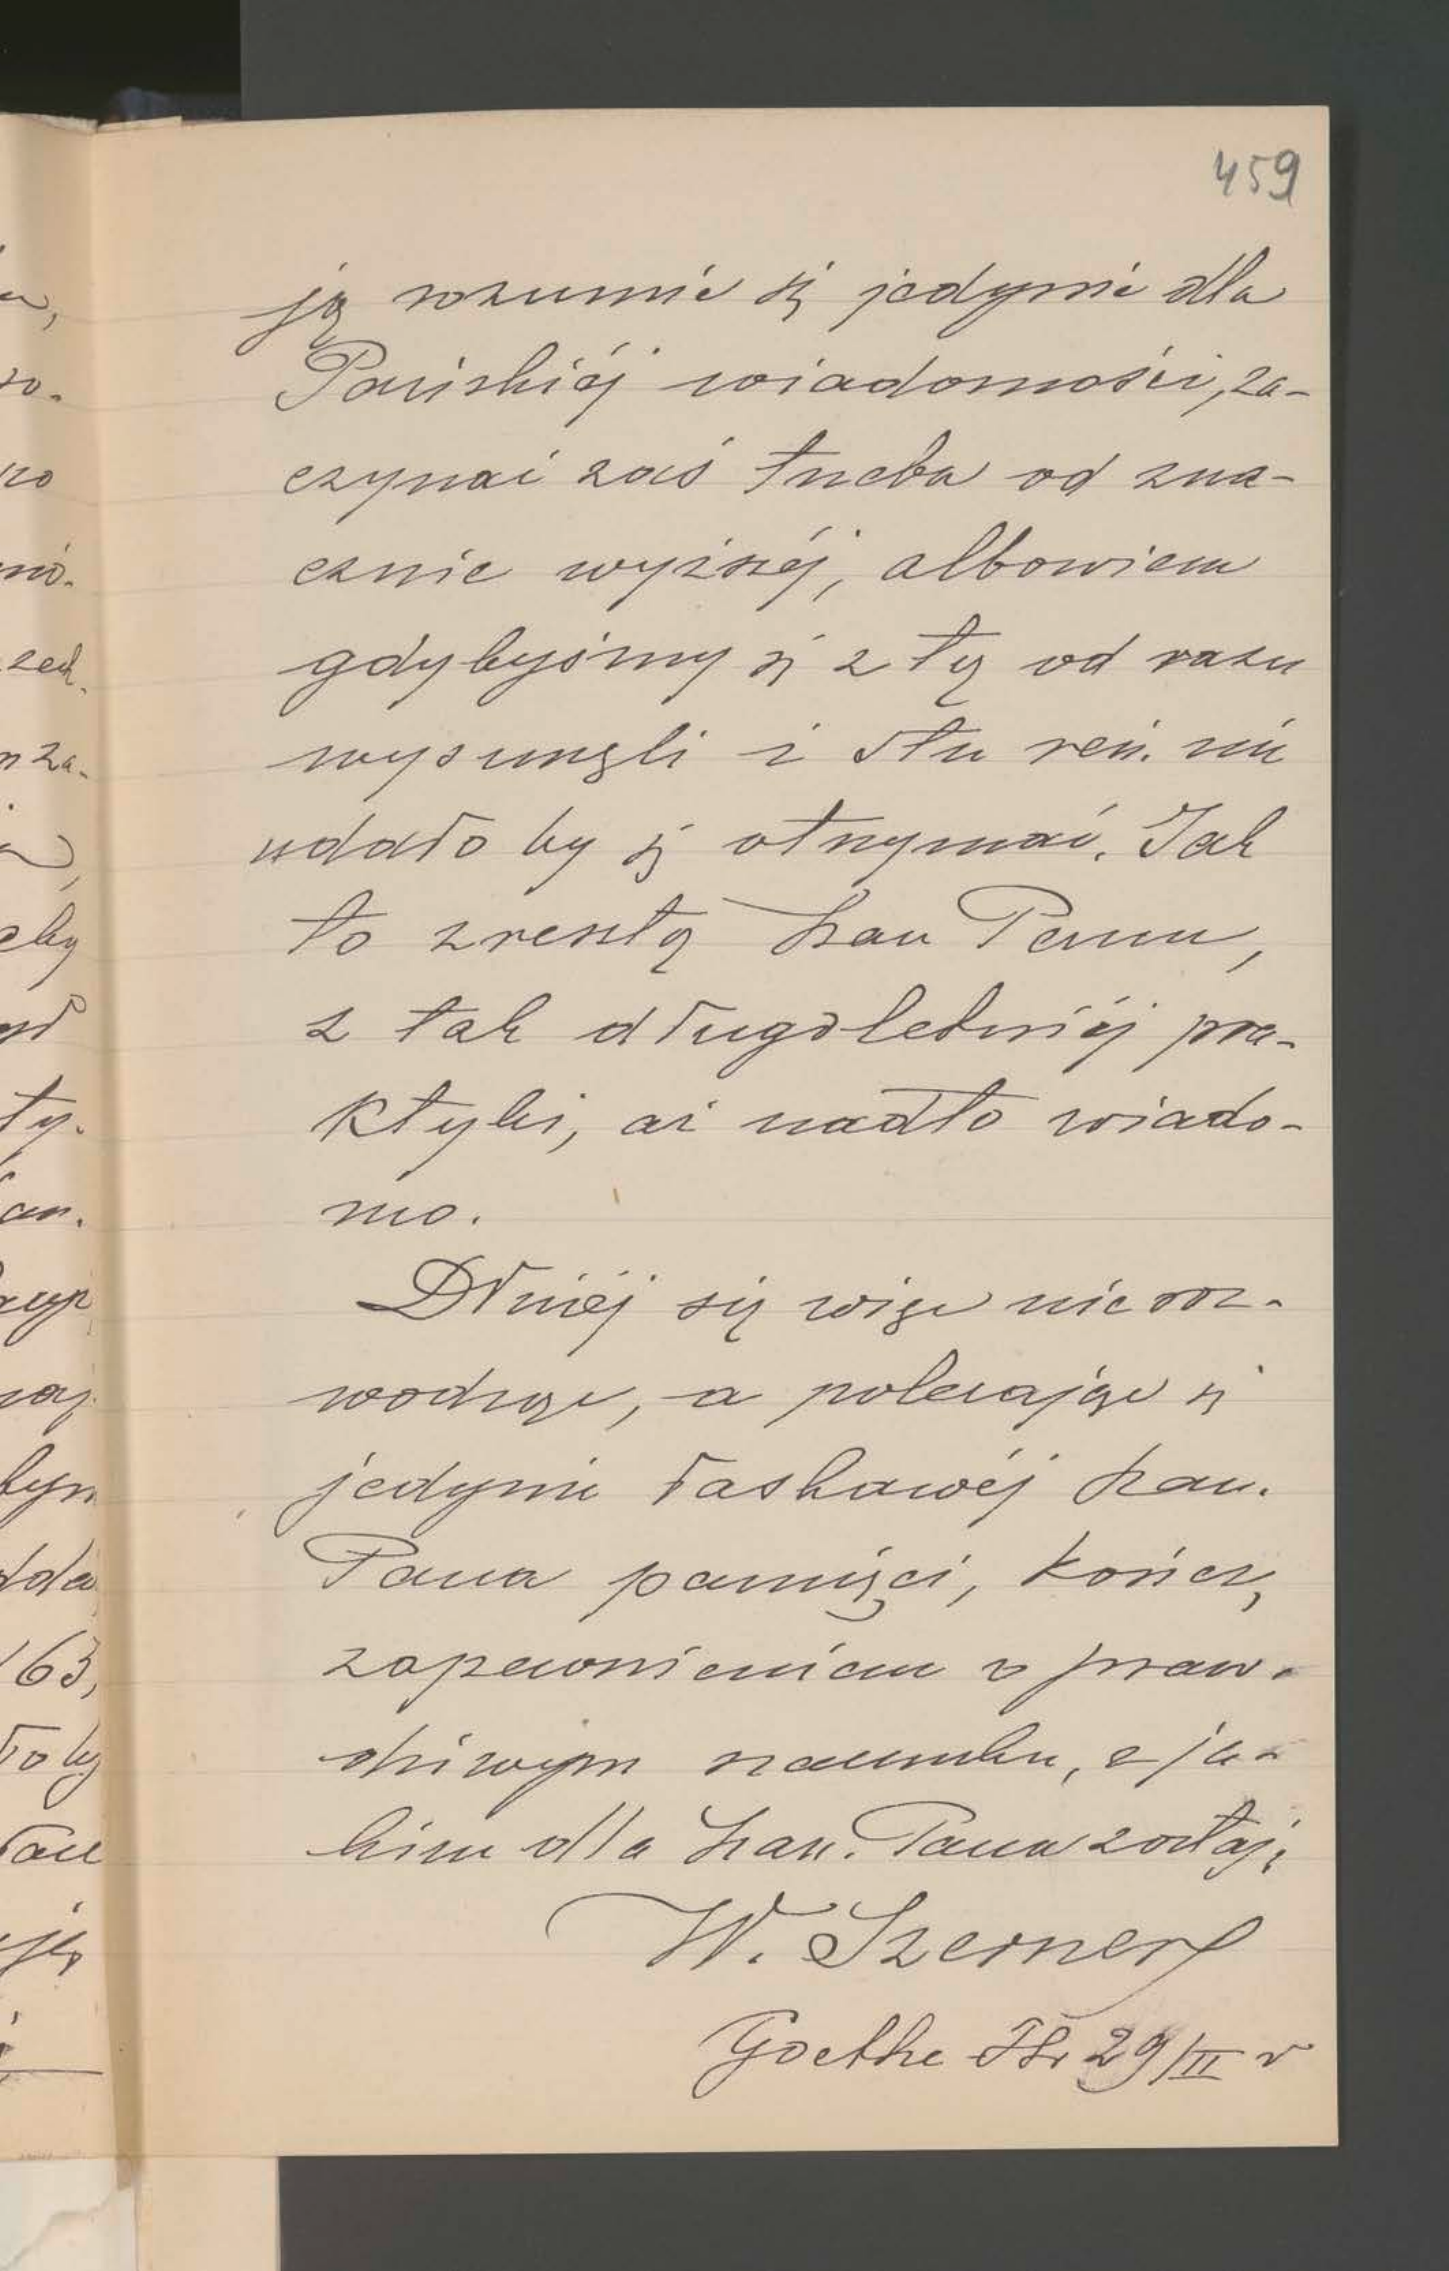 459
ją rozumie się jedynie dla
Pańskiéj wiadomości, za-
czynać zaś trzeba od zna-
cznie wyższéj, albowiem
gdybyśmy się z tą od razu
wysunęli i stu reń. nie
udało by się otrzymać. Jak
to zresztą Szan Panu,
z tak długoletniéj pra-
ktyki, aż nadto wiado-
mo.
Dłużéj się więc nie roz-
wodząc, a polecając się
jedynie łaskawéj Szan.
Pana pamięci, kończę
zapewnieniem o praw-
dziwym szacunku, z ja-
kim dla Szan. Pana zostaję
W. Szerner
Goethe Str 29/III r